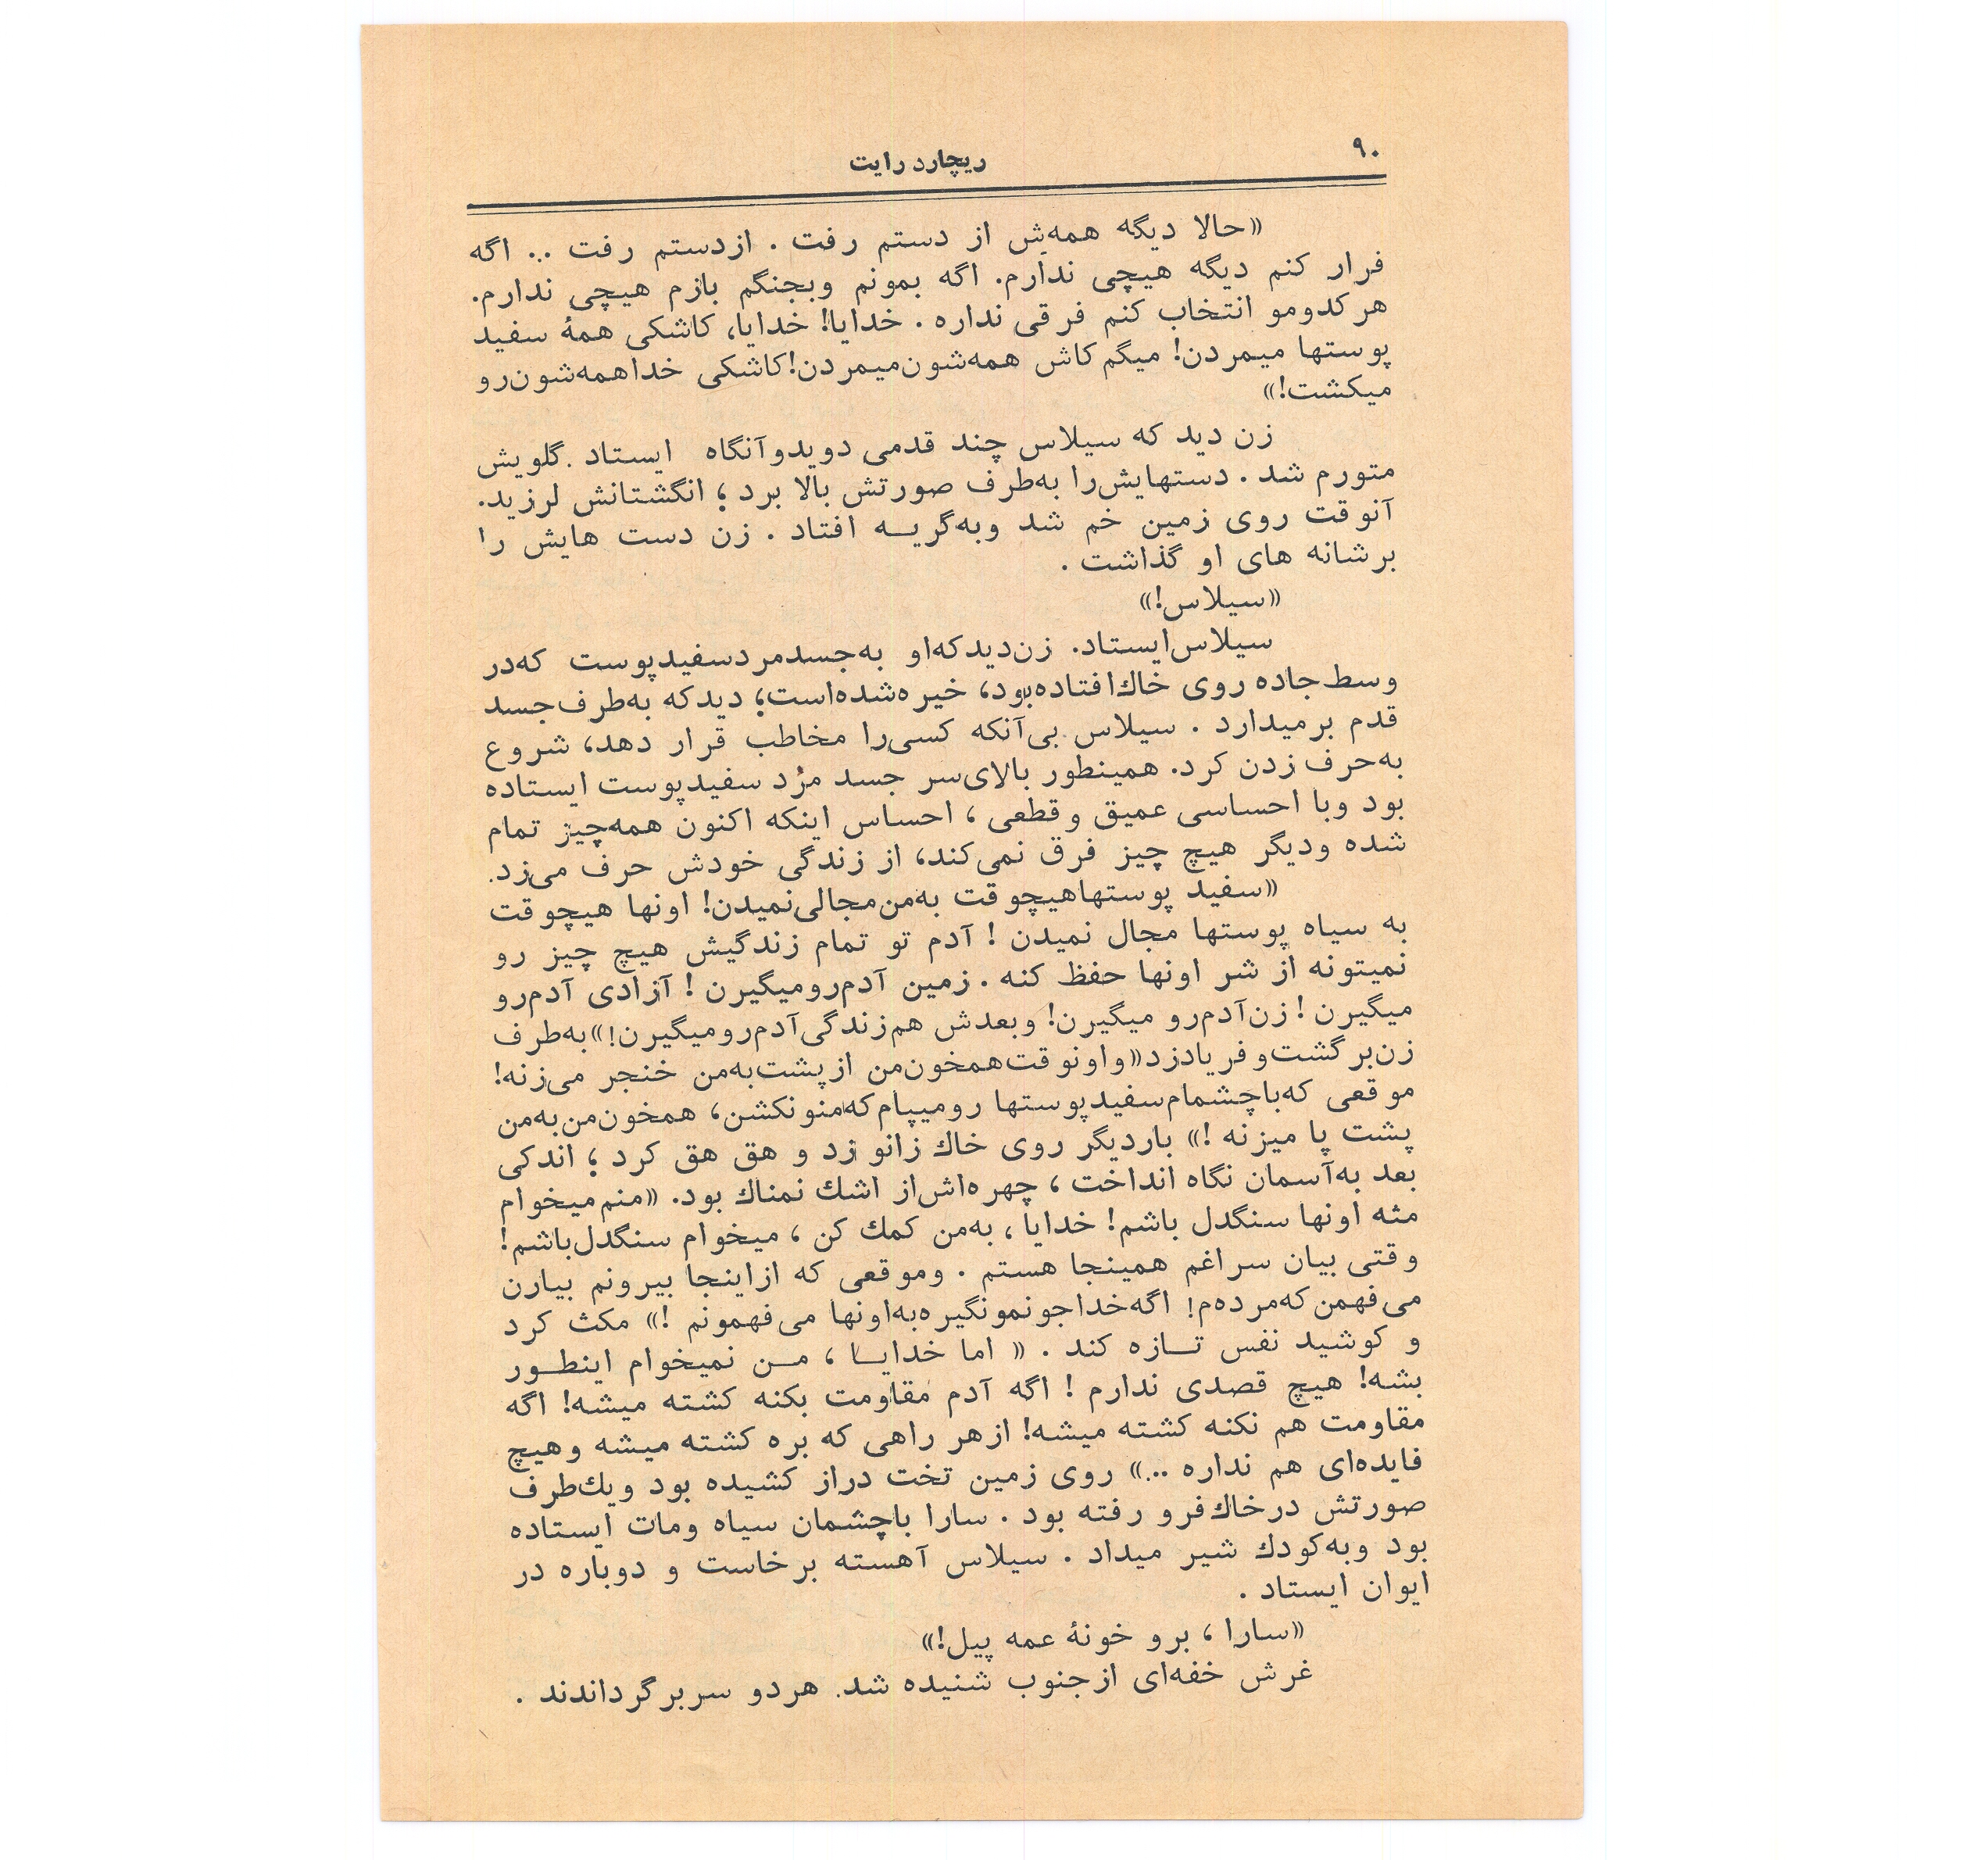 ۹۰
ریچارد رایت
«حالا دیگه همه‌ش از دستم رفت . ازدستم رفت ... اگه
فرار کنم دیگه هیچی ندارم. اگه بمونم وبجنگم بازم هیچی ندارم.
هرکدومو انتخاب کنم فرقی نداره . خدایا! خدایا، کاشکی همهٔ سفید
پوستها میمردن! میگم کاش همه‌شون‌میمردن!کاشکی خداهمه‌شون‌رو
میکشت!»
زن دید که سیلاس چند قدمی دویدوآنگاه ایستاد .گلویش
متورم شد . دستهایش‌را به‌طرف صورتش بالا برد ؛ انگشتانش لرزید.
آنوقت روی زمین خم شد وبه‌گریــه افتاد . زن دست هایش را
برشانه های او گذاشت .
«سیلاس!»
سیلاس‌ایستاد. زن‌دیدکه‌او به‌جسدمردسفیدپوست که‌در
وسط‌جاده روی خاك‌افتاده‌بود، خیره‌شده‌است؛ دیدکه به‌طرف‌جسد
قدم برمیدارد . سیلاس بی‌آنکه کسی‌را مخاطب قرار دهد، شروع
به‌حرف زدن کرد. همینطور بالای‌سر جسد مرد سفیدپوست ایستاده
بود وبا احساسی عمیق وقطعی ، احساس اینکه اکنون همه‌چیز تمام
شده ودیگر هیچ چیز فرق نمی‌کند، از زندگی خودش حرف می‌زد.
«سفید پوستهاهیچوقت به‌من‌مجالی‌نمیدن! اونها هیچوقت
به سیاه پوستها مجال نمیدن ! آدم تو تمام زندگیش هیچ چیز رو
نمیتونه از شر اونها حفظ کنه . زمین آدم‌رومیگیرن ! آزادی آدم‌رو
میگیرن ! زن‌آدم‌رو میگیرن! وبعدش هم‌زندگی‌آدم‌رومیگیرن!»به‌طرف
زن‌برگشت‌وفریادزد«واونوقت‌همخون‌من ازپشت‌به‌من خنجر می‌زنه!
موقعی که‌باچشمام‌سفیدپوستها رومیپام‌که‌منونکشن، همخون‌من‌به‌من
پشت پا میزنه !» باردیگر روی خاك زانو زد و هق هق کرد ؛ اندکی
بعد به‌آسمان نگاه انداخت ، چهره‌اش‌از اشك نمناك بود. «منم‌میخوام
مثه اونها سنگدل باشم! خدایا ، به‌من کمك کن ، میخوام سنگدل‌باشم!
وقتی بیان سراغم همینجا هستم . وموقعی که ازاینجا بیرونم بیارن
می‌فهمن‌که‌مرده‌م! اگه‌خداجونمونگیره‌به‌اونها می‌فهمونم !» مکث کرد
و کوشید نفس تــازه کند . « اما خدایــا ، مــن نمیخوام اینطــور
بشه! هیچ قصدی ندارم ! اگه آدم مقاومت بکنه کشته میشه! اگه
مقاومت هم نکنه کشته میشه! ازهر راهی که بره کشته میشه وهیچ
فایده‌ای هم نداره ...» روی زمین تخت دراز کشیده بود ویك‌طرف
صورتش درخاك‌فرو رفته بود . سارا باچشمان سیاه ومات ایستاده
بود وبه‌کودك شیر میداد . سیلاس آهسته برخاست و دوباره در
ایوان ایستاد .
«سارا ، برو خونهٔ عمه پیل!»
غرش خفه‌ای ازجنوب شنیده شد. هردو سربرگرداندند .